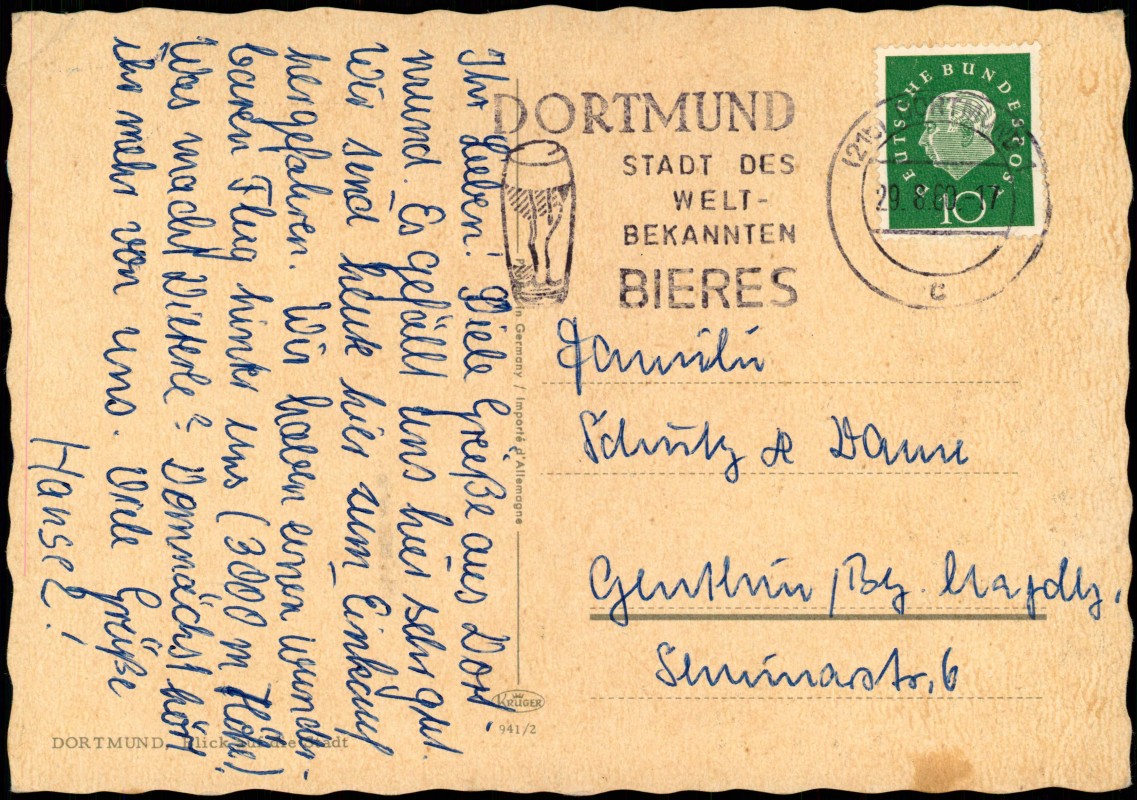 Ihr Lieben! Viele Grüße aus Dort-
mund. Es gefällt uns hier sehr gut.
Wir sind heute hier zum Einkauf
hergefahren. Wir haben einen wunder-
baren Flug hinter uns (3000 m Höhe)
Was macht Dieterle? Demnächst hört
ihr mehr von uns. Viele Grüße
Hansel!
DORTMUND
STADT DES
WELT-
BEKANNTEN
BIERES
DEUTSCHE BUNDESPOST
10
29. 8. 60 - 17
c
in Germany / Importé d'Allemagne
Familie
Schulz & Damm
Genthin / Bez. Magdbg.
Seminarstr. 6
KRÜGER
941/2
DORTMUND, Blick auf die Stadt